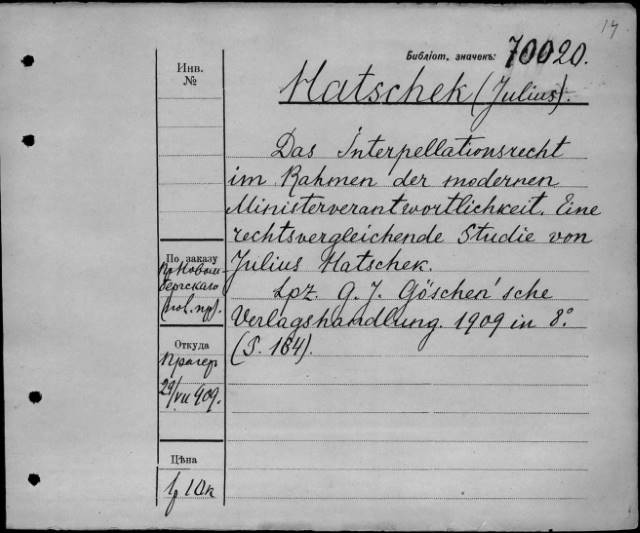 14
Библіот. значекъ: 70020.
Инв.
№
Hatschek (Julius).
Das Interpellationsrecht
im Rahmen der modernen
Ministerverantwortlichkeit. Eine
rechtsvergleichende Studie von
Julius Hatschek.
Lpz. G. J. Göschen'sche
Verlagshandlung. 1909 in 8.°
(S. 164).
По заказу
Откуда
Прагер
29/VII 909.
Цѣна
10 к